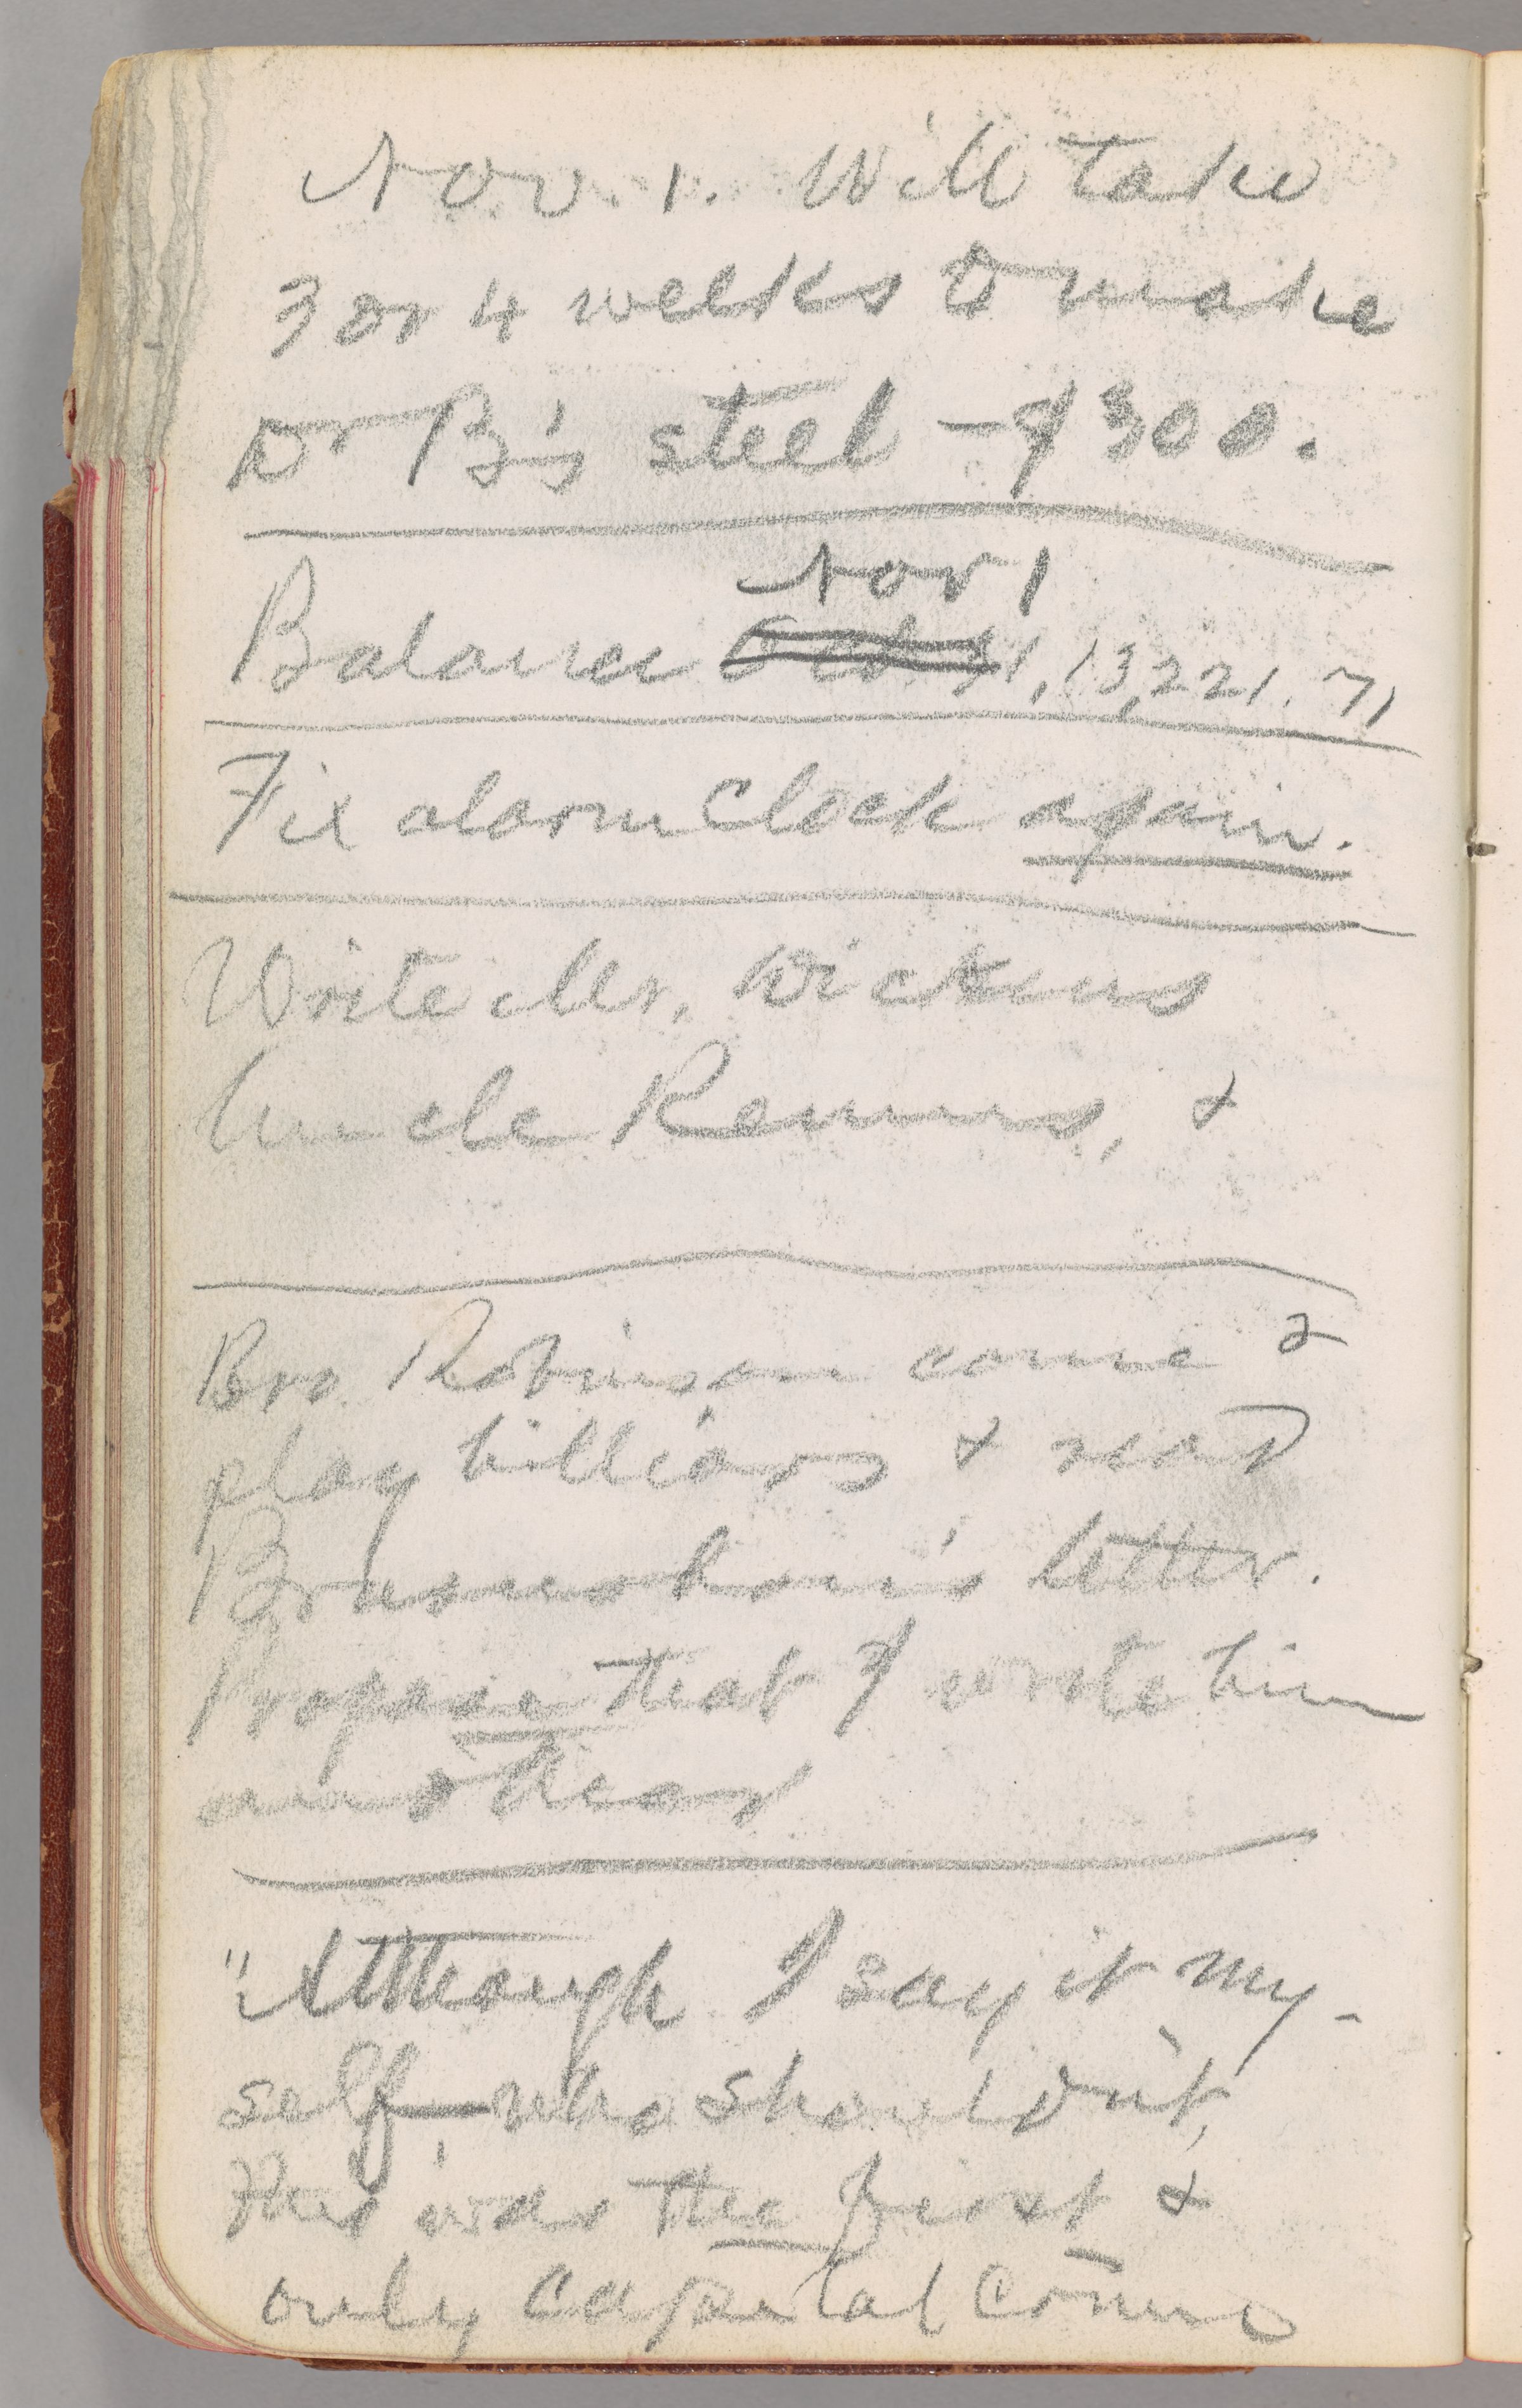 Nov. 1. Will take
3 or 4 weeks to make
Dr B's steel – $300.
Nov 1
Balance Oct 31, 13,221.71
Fix alarm Clock again.
Write Mr.
Uncle Remus, &
Bro. Robinson come &
play billiards & read
letter.
Propose that I write him
another
"Although I say it my-
self—who shouldn't,
this was the first &
only capital